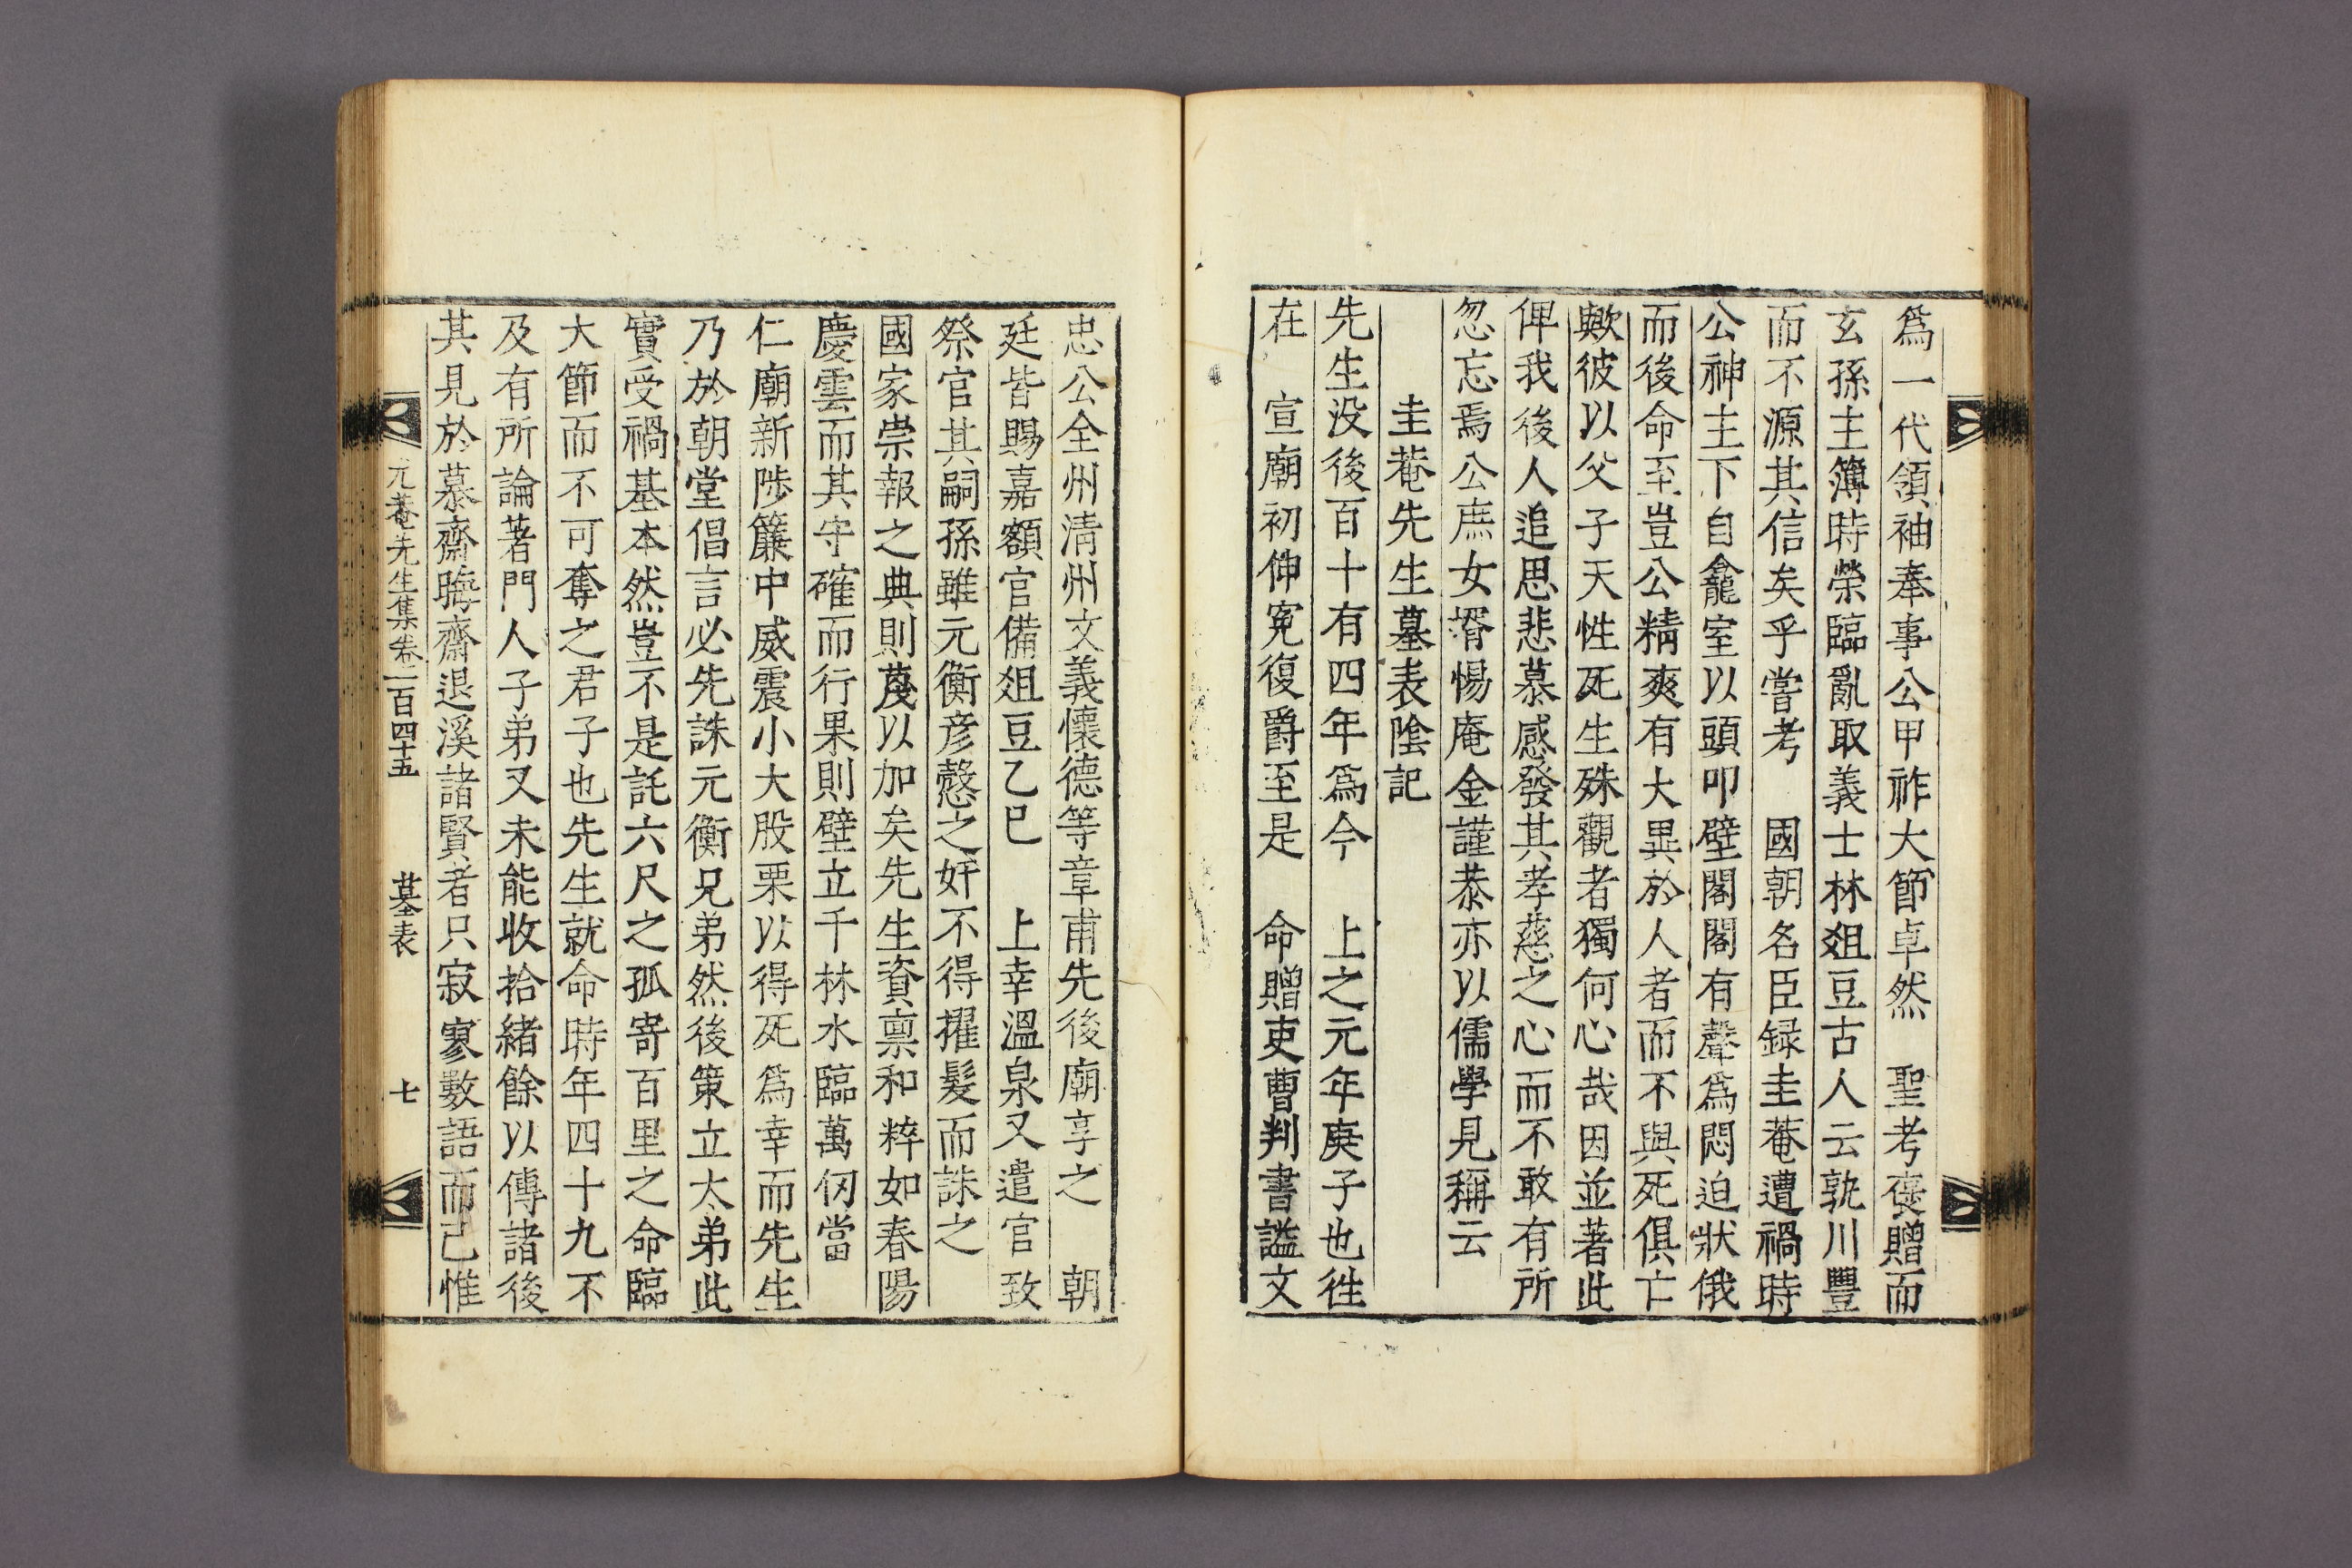 爲一代領袖奉事公甲祚大節卓然 聖考褒贈而
玄孫主簿時榮臨亂取義士林俎豆古人云孰川豐
而不源其信矣乎嘗考 國朝名臣録圭菴遭禍時
公神主下自龕室以頭叩壁閣閣有聲爲悶迫狀俄
而後命至豈公精爽有大異於人者而不與死俱亡
歟彼以父子天性死生殊觀者獨何心哉因並著此
俾我後人追思悲慕感發其孝慈之心而不敢有所
忽忘焉公庶女壻惕庵金謹恭亦以儒學見稱云
圭菴先生墓表陰記
先生没後百十有四年爲今 上之元年庚子也徃
在 宣廟初伸寃復爵至是 命贈吏曹判書謚文
忠公全州淸州文義懷德等章甫先後廟享之 朝
廷皆賜嘉額官備俎豆乙巳 上幸溫泉又遣官致
祭官其嗣孫雖元衡彦慤之奸不得擢髮而誅之
國家崇報之典則蔑以加矣先生資禀和粹如春陽
慶雲而其守確而行果則壁立千林水臨萬仞當
仁廟新陟簾中威震小大股栗以得死爲幸而先生
乃於朝堂倡言必先誅元衡兄弟然後策立太弟此
實受禍基本然豈不是託六尺之孤寄百里之命臨
大節而不可奪之君子也先生就命時年四十九不
及有所論著門人子弟又未能收拾緖餘以傳諸後
其見於慕齋晦齋退溪諸賢者只寂寥數語而已惟
尤菴先生集卷一百四十五 墓表 七